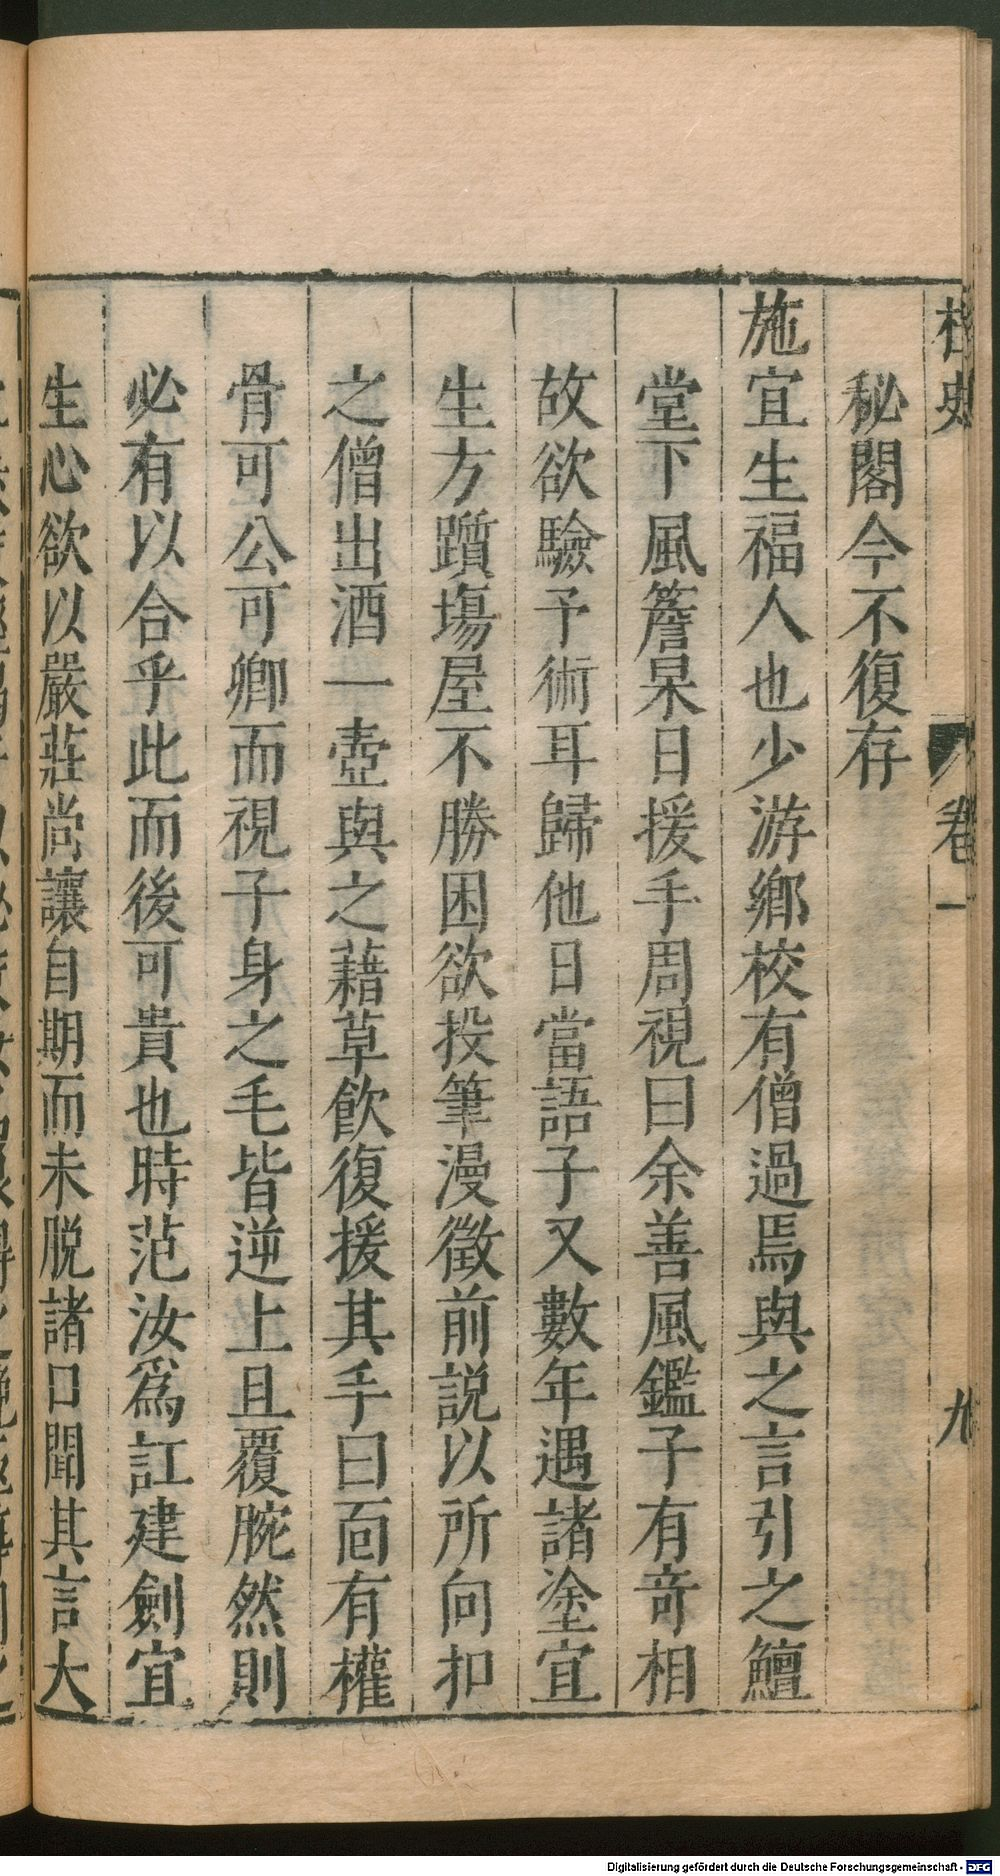 桯史 卷一 九
秘閣今不復存
施宜生福人也少游鄉校有僧過焉與之言引之鱣
堂下風簷杲日援手周視曰余善風鑑子有奇相
故欲驗予術耳歸他日當語子又數年遇諸塗宜
生方躓塲屋不勝困欲投筆漫徵前説以所向扣
之僧出酒一壺與之藉草飮復援其手曰面有權
骨可公可卿而視子身之毛皆逆上且覆腕然則
必有以合乎此而後可貴也時范汝爲訌建劍宜
生心欲以嚴莊尚讓自期而未脱諸口聞其言大
Digitalisierung gefördert durch die Deutsche Forschungsgemeinschaft - DFG